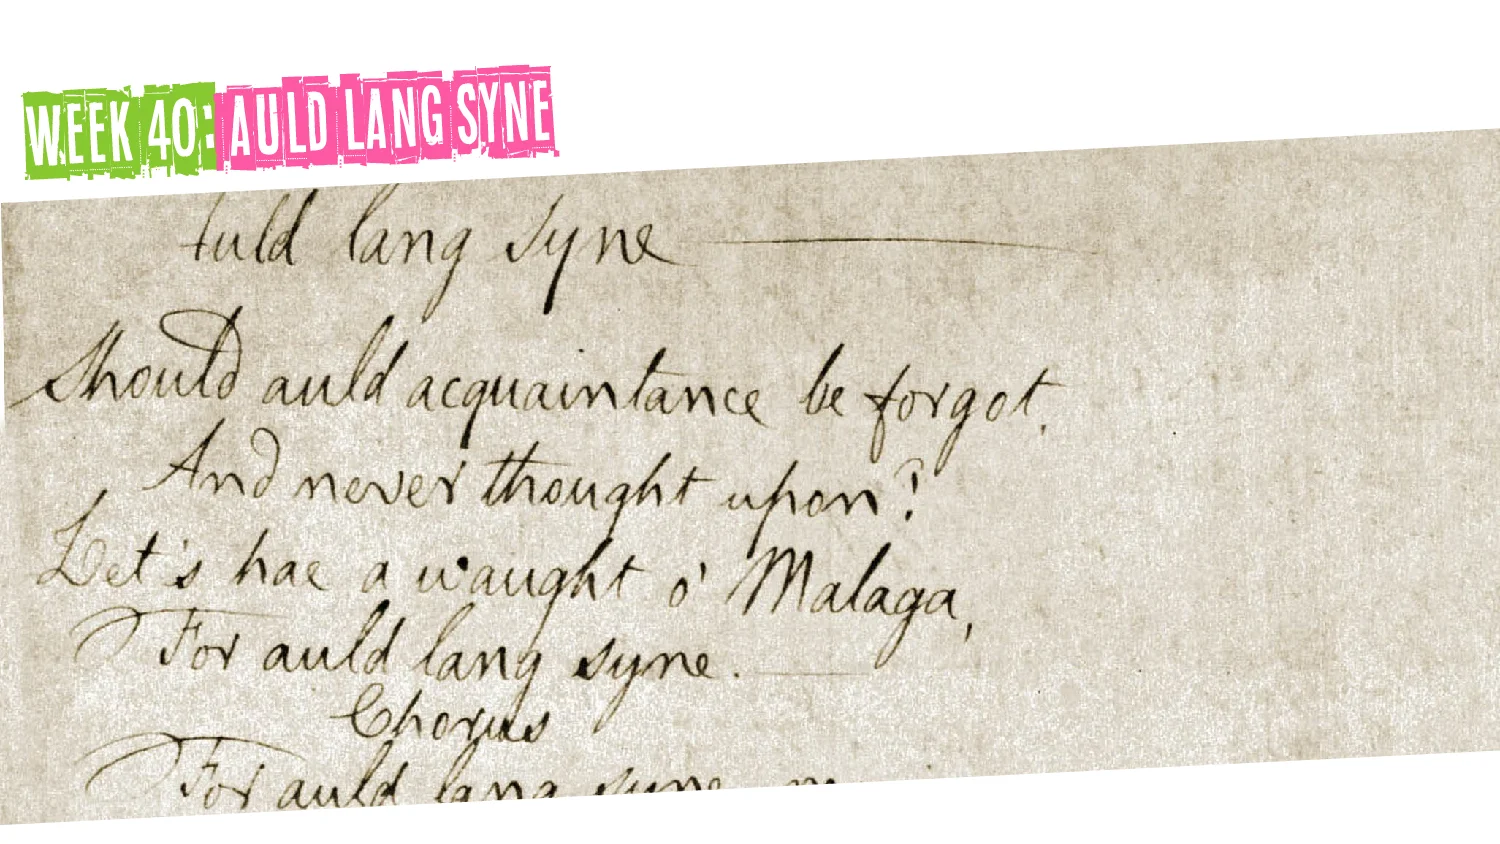 WEEK 40: AULD LANG SYNE
Auld lang syne
Should auld acquaintance be forgot,
And never thought upon?
Let's hae a waught o' Malaga,
For auld lang syne.
Chorus
For auld lang syne